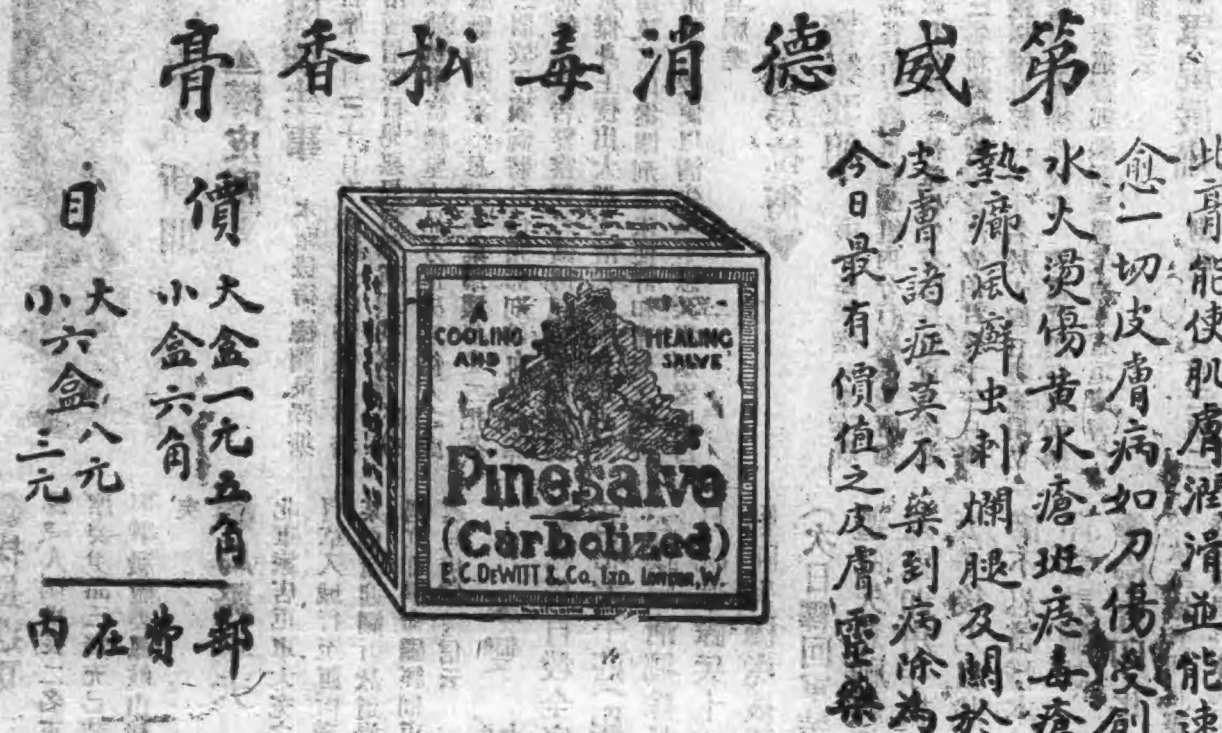 第威德消毒松香膏
此膏能使肌膚潤滑並能速
愈一切皮膚病如刀傷受創
水火燙傷黄水瘡斑痣毒瘡
熱癤風癬虫刺爛腿及關於
皮膚諸症莫不藥到病除為
今日最有價值之皮膚靈藥
A
COOLING
AND
HEALING
SALVE
Pinesalve
(Carbolized)
E.C.DEWITT & Co. LTD. LONDON, W.
價目
大盒一元五角
小盒六角
大八元
小六盒三元
郵費在内